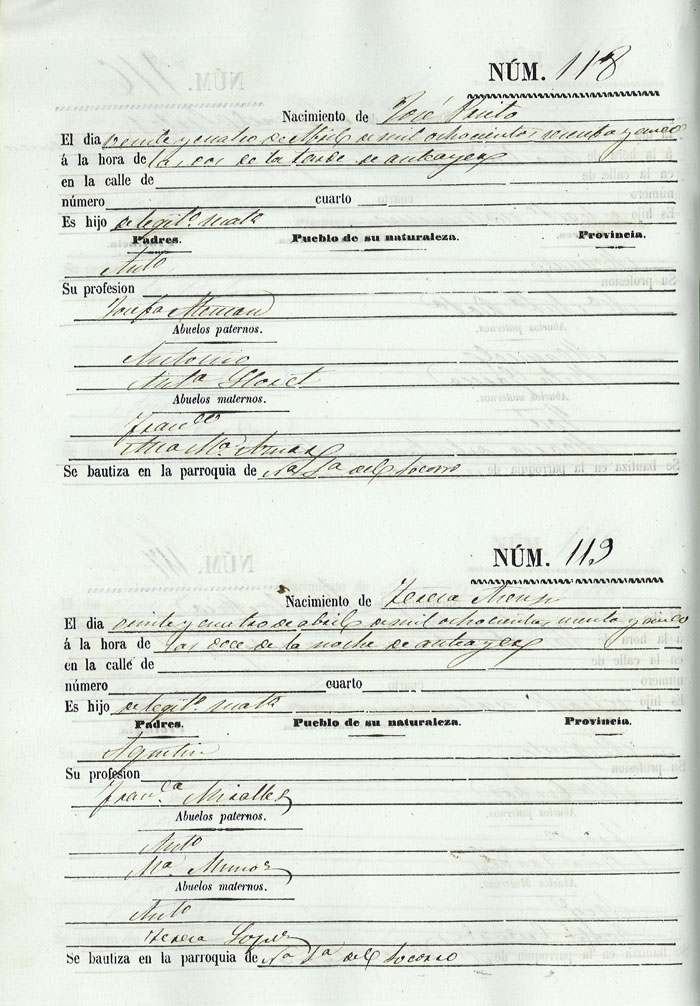 NÚM. 118
Nacimiento de José Brito
El dia veinte y cuatro de Abril de mil ochocientos sesenta y cinco
á la hora de las dos de la tarde de anteayer
en la calle de
número cuarto
Es hijo de legit.º mat.º
Padres. Pueblo de su naturaleza. Provincia.
Ant.º
Su profesion
Josefa Aleman
Abuelos paternos.
Antonio
Ant.ª Lloret
Abuelos maternos.
Fran.co
Ana M.ª
Se bautiza en la parroquia de N.ª S.ª del Socorro
NÚM. 119
Nacimiento de Teresa
El dia veinte y cuatro de abril de mil ochocientos sesenta y cinco
á la hora de las doce de la noche de anteayer
en la calle de
número cuarto
Es hijo de legit.º mat.º
Padres. Pueblo de su naturaleza. Provincia.
Agustin
Su profesion
Fran.ca Miralles
Abuelos paternos.
Ant.º
M.ª Munoz
Abuelos maternos.
Ant.º
Teresa Lopez
Se bautiza en la parroquia de N.ª S.ª del Socorro